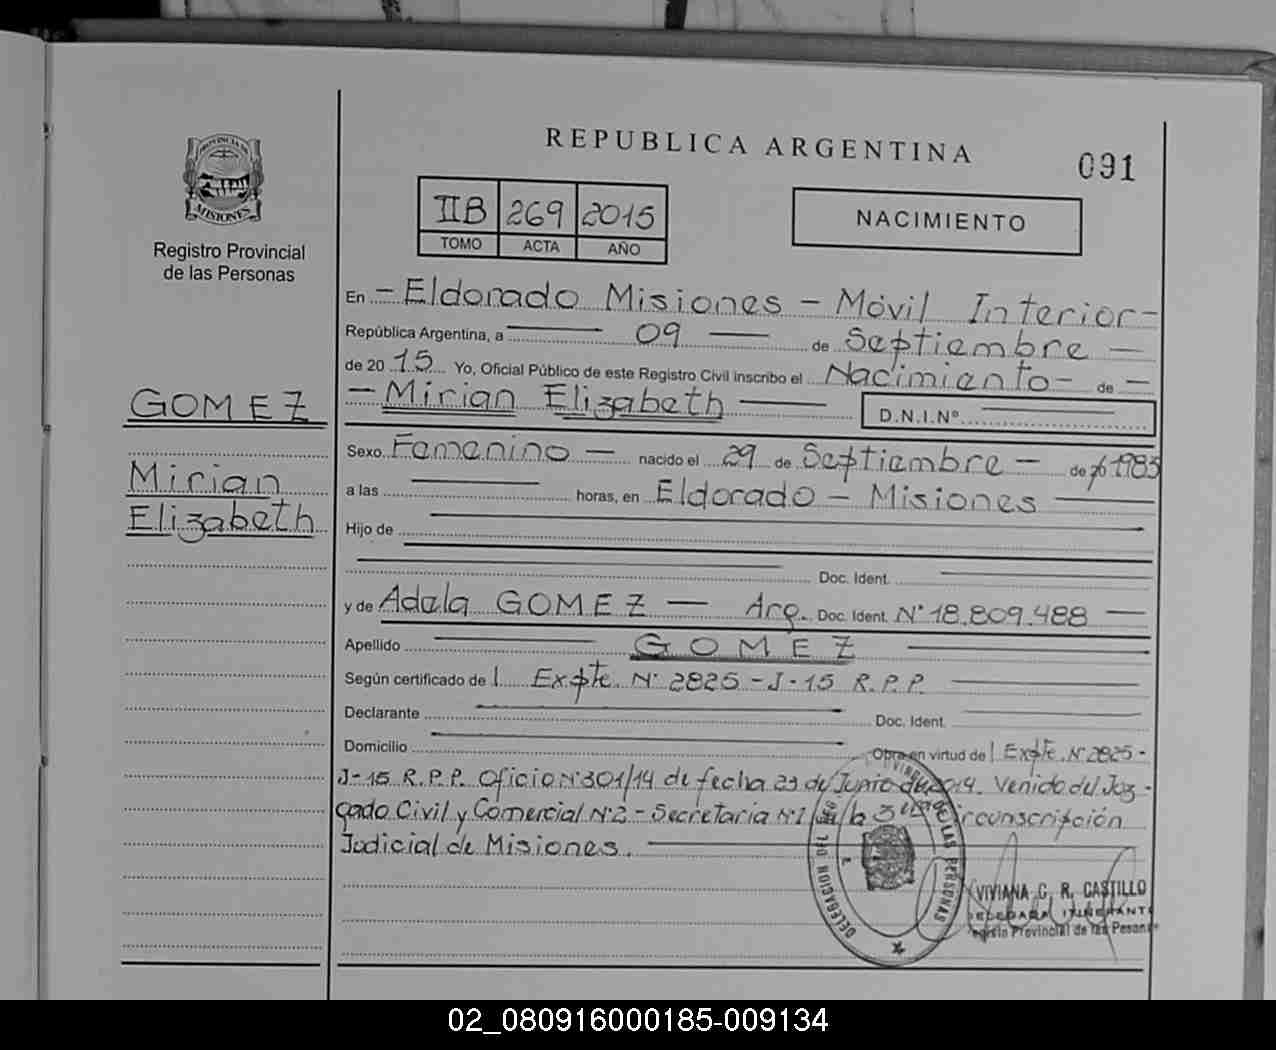 REPUBLICA ARGENTINA
091
PROVINCIA DE
MISIONES
Registro Provincial
de las Personas
IIB 269 2015
TOMO ACTA AÑO
NACIMIENTO
En - Eldorado Misiones - Móvil Interior -
República Argentina, a 09 de Septiembre -
de 20 15 Yo, Oficial Público de este Registro Civil inscribo el Nacimiento - de -
- Mirian Elizabeth D.N.I.Nº
GOMEZ
Mirian
Elizabeth
Sexo Femenino - nacido el 29 de Septiembre - de 1983
a las horas, en Eldorado - Misiones
Hijo de
Doc. Ident.
y de Adela GOMEZ - Arg. Doc. Ident. Nº 18.809.488 -
Apellido GOMEZ
Según certificado de | Expte. Nº 2825 - J - 15 R.P.P.
Declarante Doc. Ident.
Domicilio Obra en virtud de | Expte. Nº 2825 -
J-15 R.P.P. Oficio Nº 301/14 de fecha 23 de Junio de 2014. Venido del Juz -
gado Civil y Comercial Nº 2 - Secretaria Nº 1 de la 3 circunscripción
Judicial de Misiones.
DELEGACION DEL DE LAS PERSONAS
VIVIANA C. R. CASTILLO
DELEGADA ITINERANTE
Registro Provincial de las Persona
02_080916000185-009134